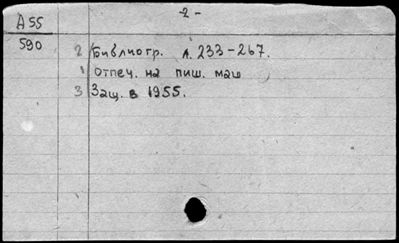 -2-
А55
590
2 Библиогр. л. 233-267.
1 отпеч. на пиш. маш
3 Защ. в 1955.